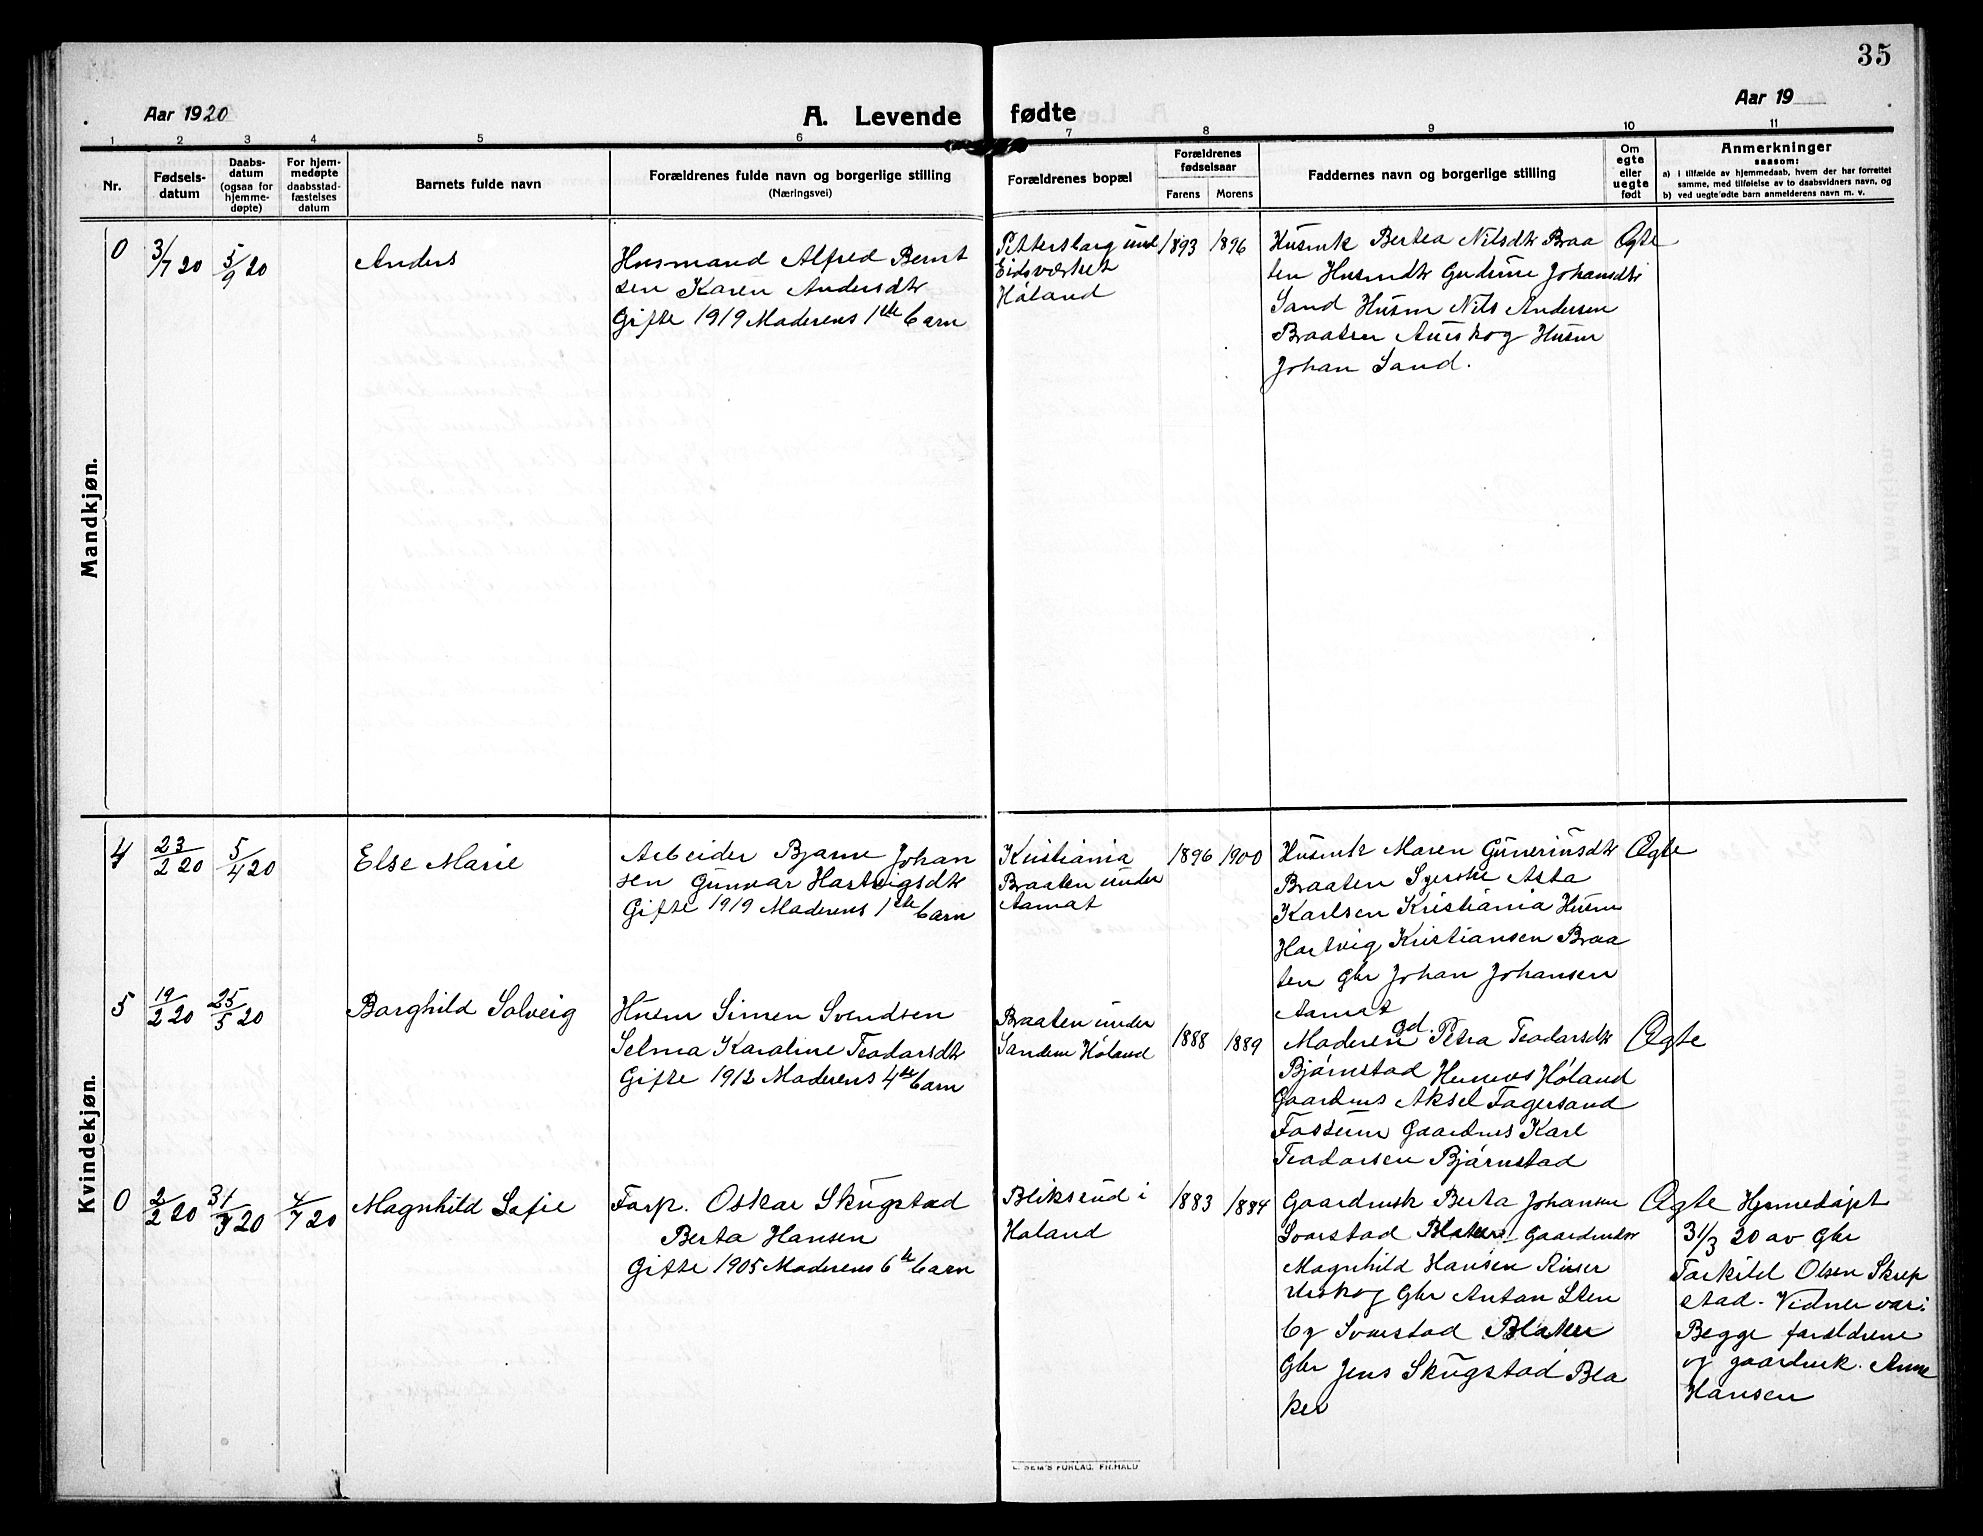 35
Aar 1920
A. Levende fødte
Aar 19
1 2 3 4 5 6 7 8 9 10 11
Nr.
Fødsels-
datum
Daabs-
datum
(ogsaa for
hjemme-
døpte)
For hjem-
medøpte
daabsstad-
fæstelses
datum
Barnets fulde navn
Forældrenes fulde navn og borgerlige stilling
(Næringsvei)
Forældrenes bopæl
Forældrenes
fødselsaar
Farens Morens
Faddernes navn og borgerlige stilling
Om
egte
eller
uegte
født
Anmerkninger
saasom:
a) i tilfælde av hjemmedaab, hvem der har forrettet
samme, med tilføielse av to daabsvidners navn, og
b) ved uegte fødte barn anmelderens navn m. v.
Mandkjøn.
0
3/7 20
5/9 20
Anders
Husmand Alfred Bernt
sen Karen Andersdtr
Gifte 1919 Moderens 1ste barn
Pettersborg und
Eidsværket
Høland
1893
1896
Husmk Bertea Nilsdtr Braa
ten Husmdtr Gudrun Johansdtr
Sand Husm Nils Andersen
Braaten Aurskog Husm
Johan Sand.
Ægte
Kvindekjøn.
4
23/2 20
5/4 20
Else Marie
Arbeider Bjarne Johan
sen Gunvar Hartvigsdtr
Gifte 1919 Moderens 1ste barn
Kristiania
Braaten under
Aamot
1896
1900
Husmk Maren Gunerius dtr
Braaten Syerske Asta
Karlsen Kristiania Husm
Hartvig Kristiansen Braa
ten Gbr Johan Johansen
Aamot
Ægte
5
19/2 20
25/5 20
Borghild Solveig
Husm Simen Svendsen
Selma Karoline Teodorsdtr
Gifte 1912 Moderens 4de barn
Braaten under
Sandem Høland
1888
1889
Moderen Gd. Petra Teodorsdtr
Bjørnstad Hemnes Høland
Gaardms Aksel Fagersand
Fossum Gaardms Karl
Teodorsen Bjørnstad
Ægte
0
2/2 20
31/3 20
4/7 20
Magnhild Sofie
Forp. Oskar Skugstad
Berta Hansen
Gifte 1905 Moderens 6te barn
Bliksrud i
Høland
1883
1884
Gaardmsk Berta Johansen
Svarstad Blaker Gaardmdtr
Magnhild Hansen Riser
Urskog Gbr Anton Sten
by Svarstad Blaker
Gbr Jens Skugstad Bla
ker
Ægte
Hjemmedøpt
31/3 20 av Gbr
Torkild Olsen Skrep
stad. Vidner var:
Begge forældrene
og gaardmk. Anne
Hansen
E. SEM'S FORLAG, FR.HALD